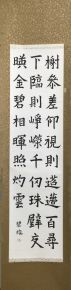 榭參差仰視則迢遰百尋
下臨則崢嶸千仞珠璧交
暎金碧相暉照灼雲